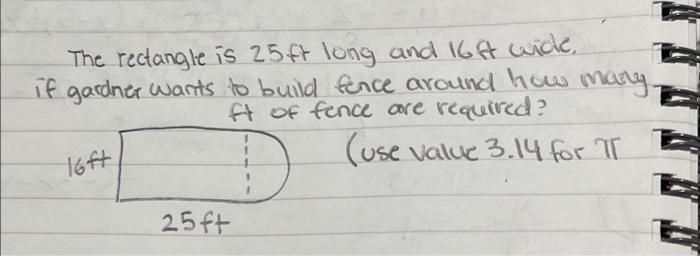 The rectangle is 25ft long and 16ft wide.
if gardner wants to build fence around how many
ft of fence are required?
(use value 3.14 for π
16ft
25ft